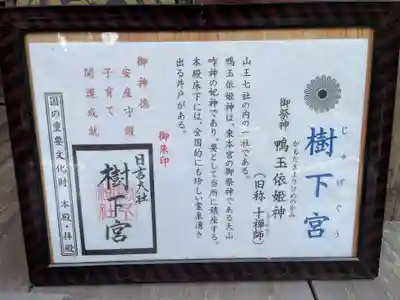 樹下宮
じゅげぐう
御祭神 鴨玉依姫神
かもたまよりひめのかみ
(旧称 十禅師)
山王七社の内の一社である。
鴨玉依姫神は、東本宮の御祭神である大山
咋神の妃神であり、要として当所に鎮座する。
本殿床下には、全国的にも珍しい霊泉湧き
出る井戸がある。
御神徳
安産守護
子育て
開運成就
御朱印
日吉大社
樹下宮
国の重要文化財 本殿・拝殿